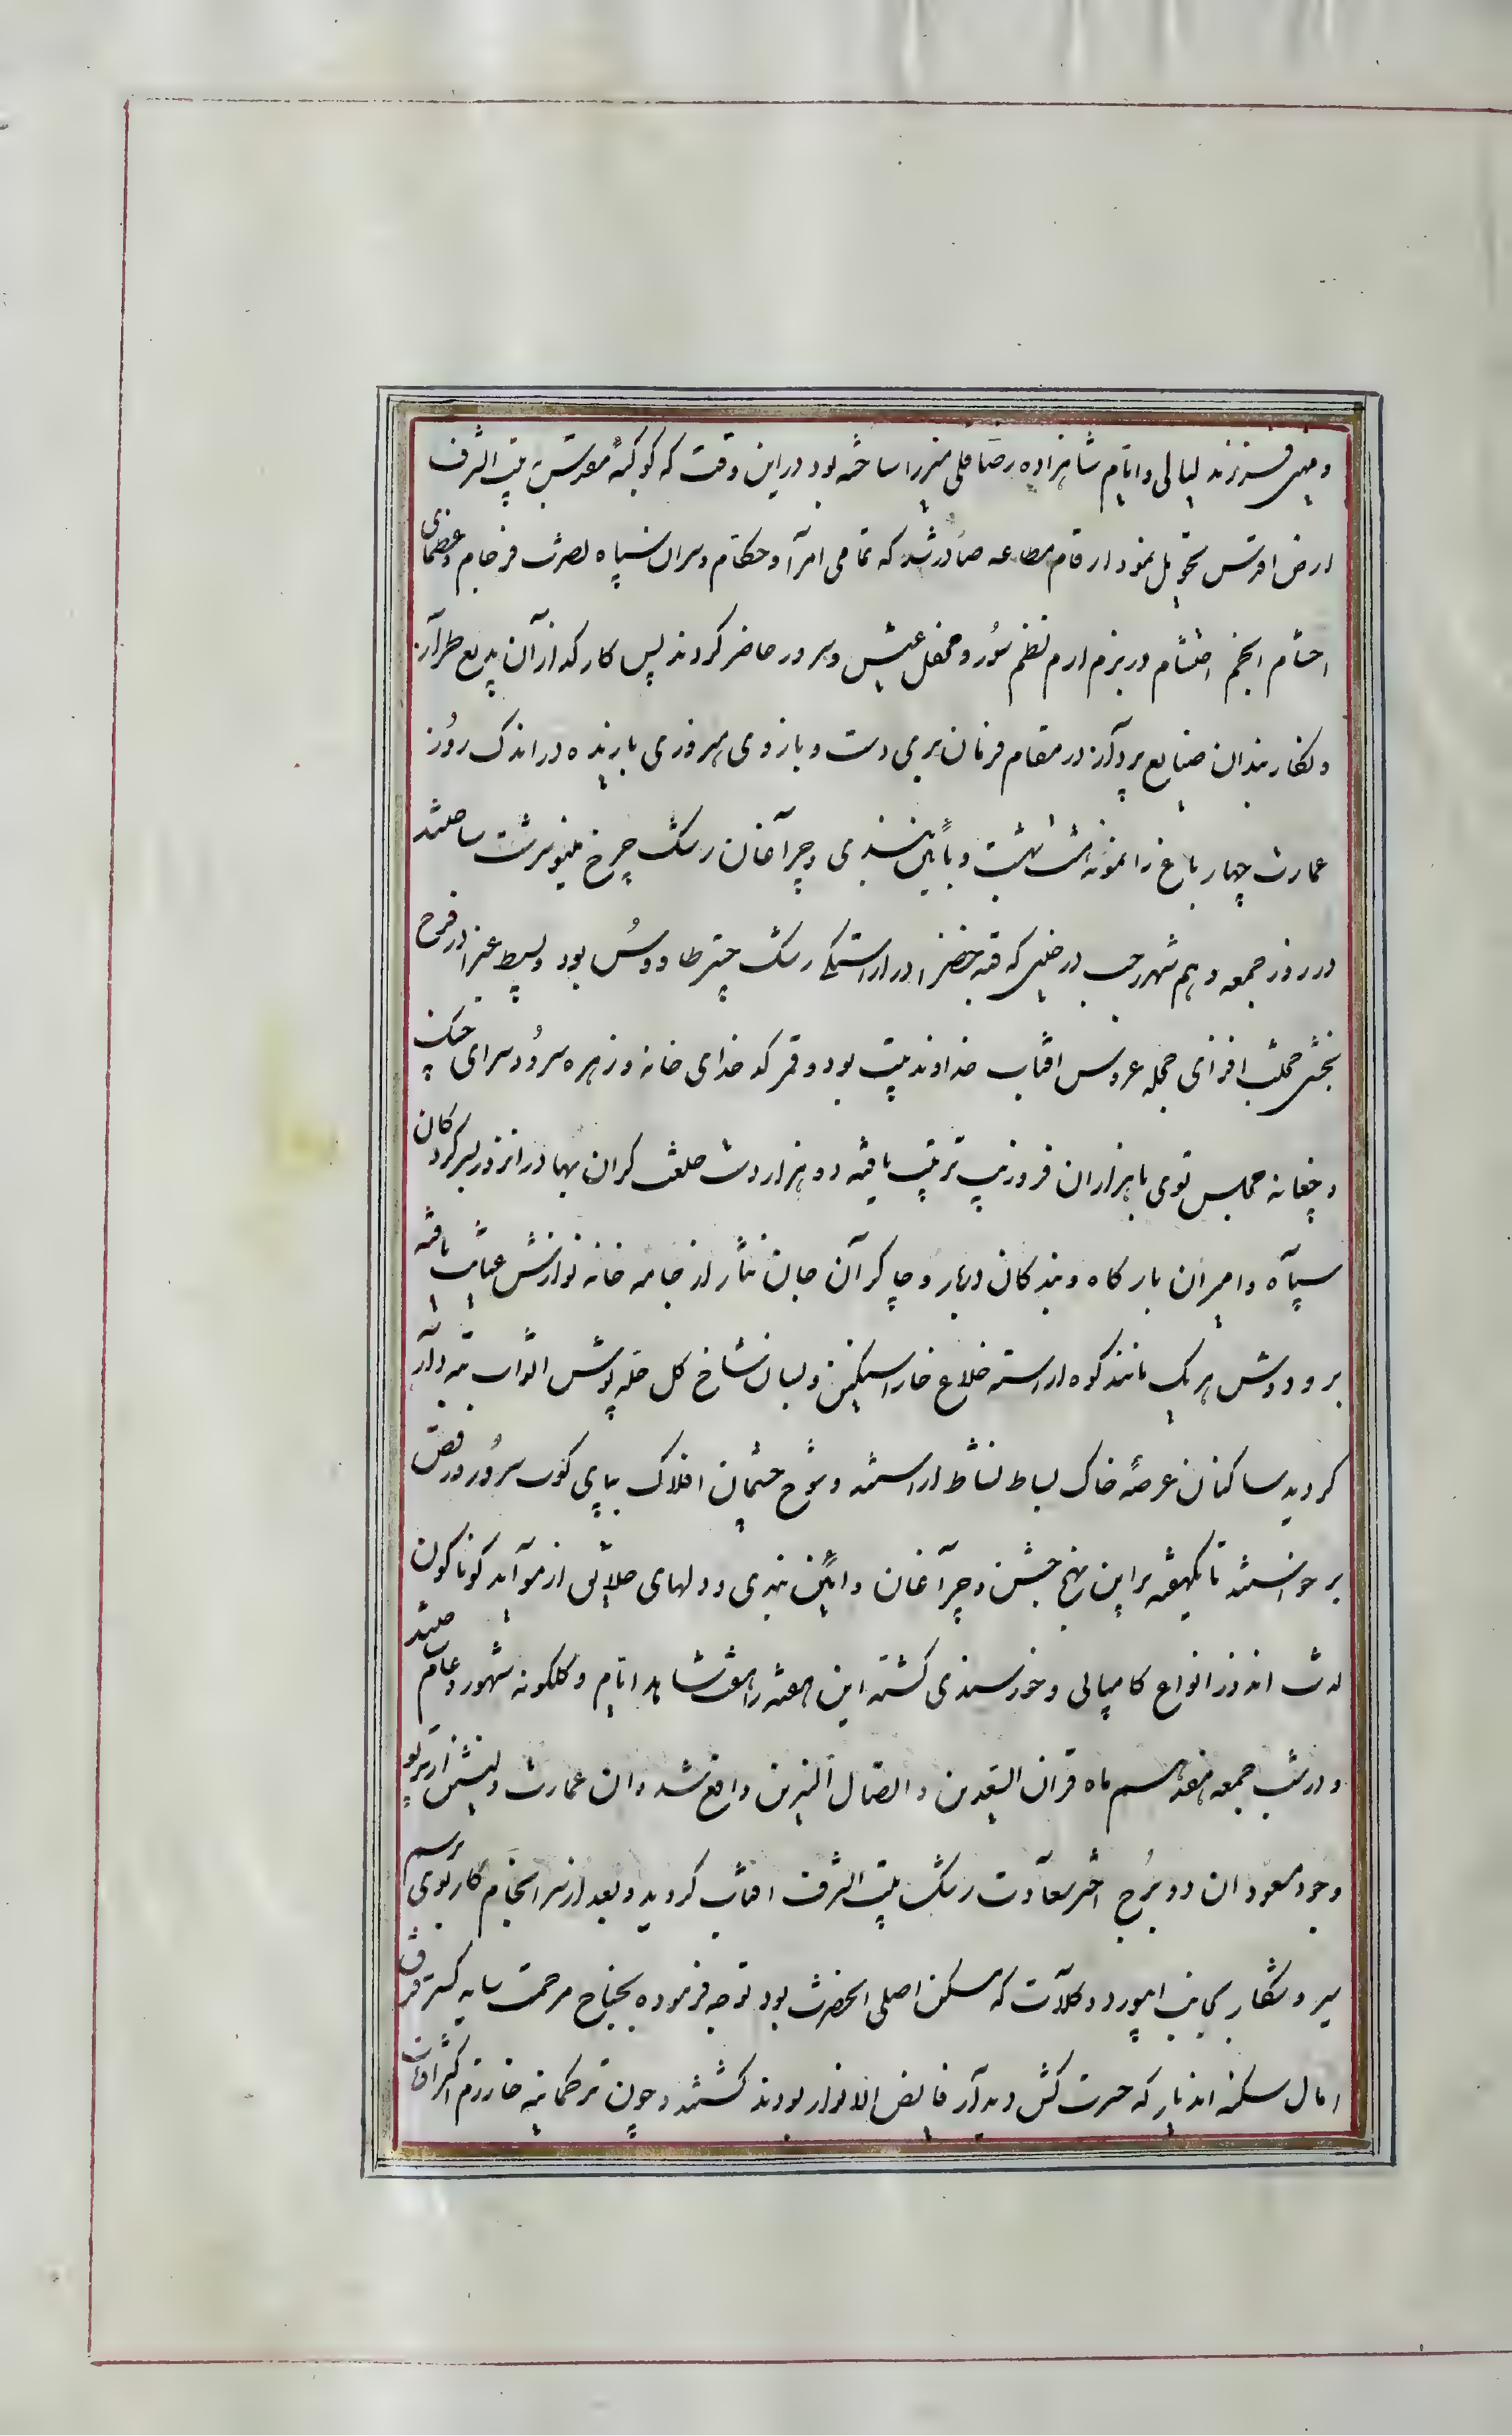 و مهین فرزند لیالی و ایام شاهزاده رضا قلی میرزا ساخته بود در این وقت که کوکبهٔ مقدسش به بیت الشرف
ارض اقدس تحویل نمود ارقام مطاعه صادر شد که تمامی امرآ و حکام و سران سپاه نصرت فرجام و عظمای
احشام انجم احتشام در بزم ارم نظم سُور و محفل عیش و سرور حاضر کردند پس کارکذاران بدیع طراز
و نکاربندان صنایع پرداز در مقام فرمان بری دست و بازوی هنروری یازیده در اندک روُز
عمارت چهار باغ را نمونه هشت بهشت و بآیین بندی و چراغان رشک چرخ مینو سرشت ساختند
در روز جمعه دهم شهر رجب در حینی که قبه خضرا در اراستکی رشک چتر طاووسُ بود و بسیط غبرا در فرح
بخشی خجلت افزای حجله عروس افتاب خداوند بیت بود و قمر کدخدای خانه و زهره سروُد سرای چنک
و چغانه مجلس توی با هزاران فر و زیب ترتیب یافته دو هزار دست خلعت کران بها در انروز بسرکردکان
سپاه و امیران بارکاه و بندکان دربار و چاکران جان نثار از جامه خانه نوازش عنایت یافته
بر و دوش هر یک مانند کوه اراسته خلاع خارا سنکین و بسان شاخ کل حله پوش اثواب ته دار
کردید ساکنان عرصهٔ خاک بساط نشاط اراستند و شوخ چشمان افلاک بپای کوب سروُر و رقص
برخواستند تا یکهفته براین نهج جشن و چراغان و ایین بندی و دلهای خلایق از موآید کوناکون
لذت اندوز انواع کامیابی و خورسندی کشته این هفته را هفت شاهد ایام و کلکونه شهور و عام ساختند
و در شب جمعه هفدهم ماه قران السعدین و اتصال النیرین واقع شد و ان عمارت دلنشین از پرتو
وجود مسعود ان دو بُرج اختر سعادت رشک بیت الشرف افتاب کردید و بعد از سرانجام کار توی برسم
سیر و شکار بجانب ابیورد و کلات که مسکن اصلی انحضرت بود توجه فرموده بجناح مرحمت سایه کستر فرق
امال سکنه اندیار که حسرت کش دیدار فایض الانوار بودند کشتند و چون ترکمانیه خارزم اکثر اوقات